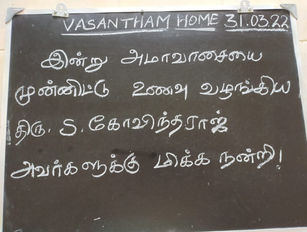 VASANTHAM HOME 31.03.22
இன்று அமாவாசையை
முன்னிட்டு உணவு வழங்கிய
திரு. S. கோவிந்தராஜ்
அவர்களுக்கு மிக்க நன்றி!